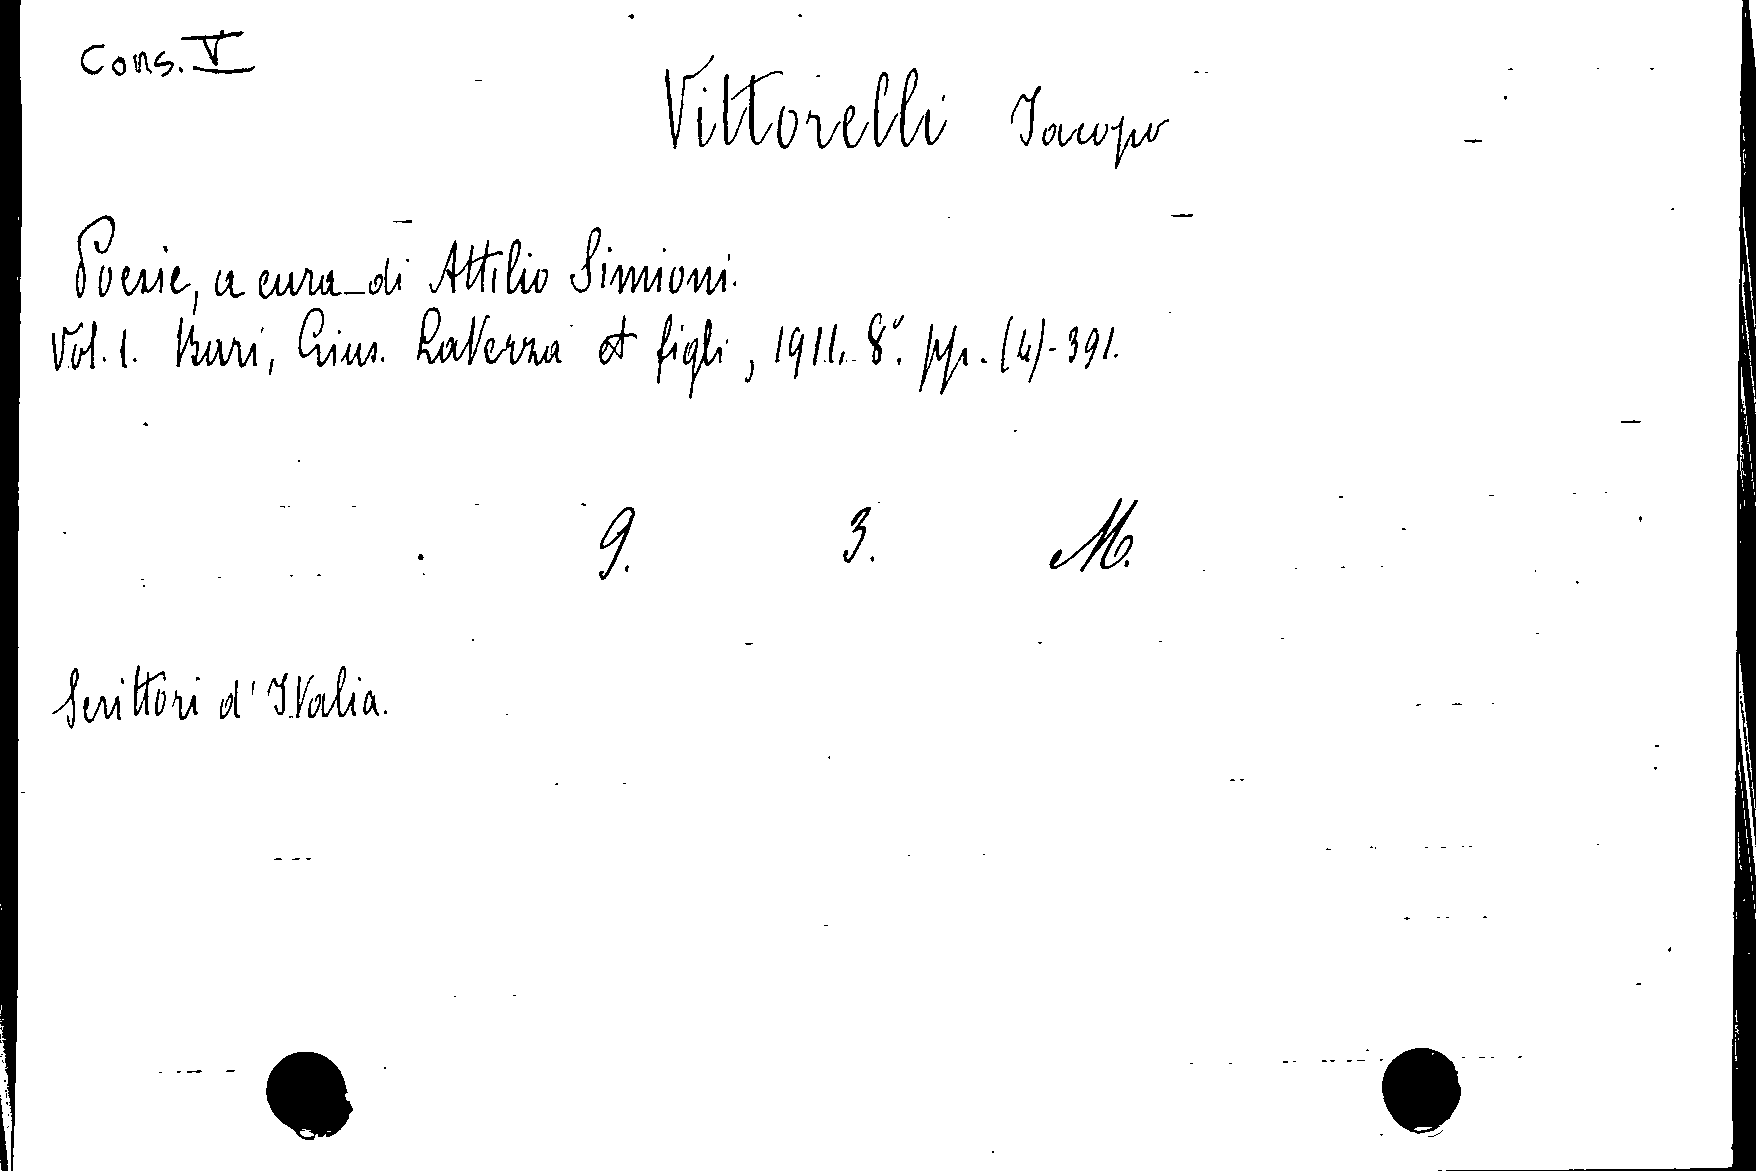 Cons. V
Vittorelli Iacopo
Poesie, a cura di Attilio Simioni.
Vol. 1. Bari, Gius. Laterza et figli, 1911. 8°. pp. (4)-391.
9. 3. M.
Scrittori d'Italia.